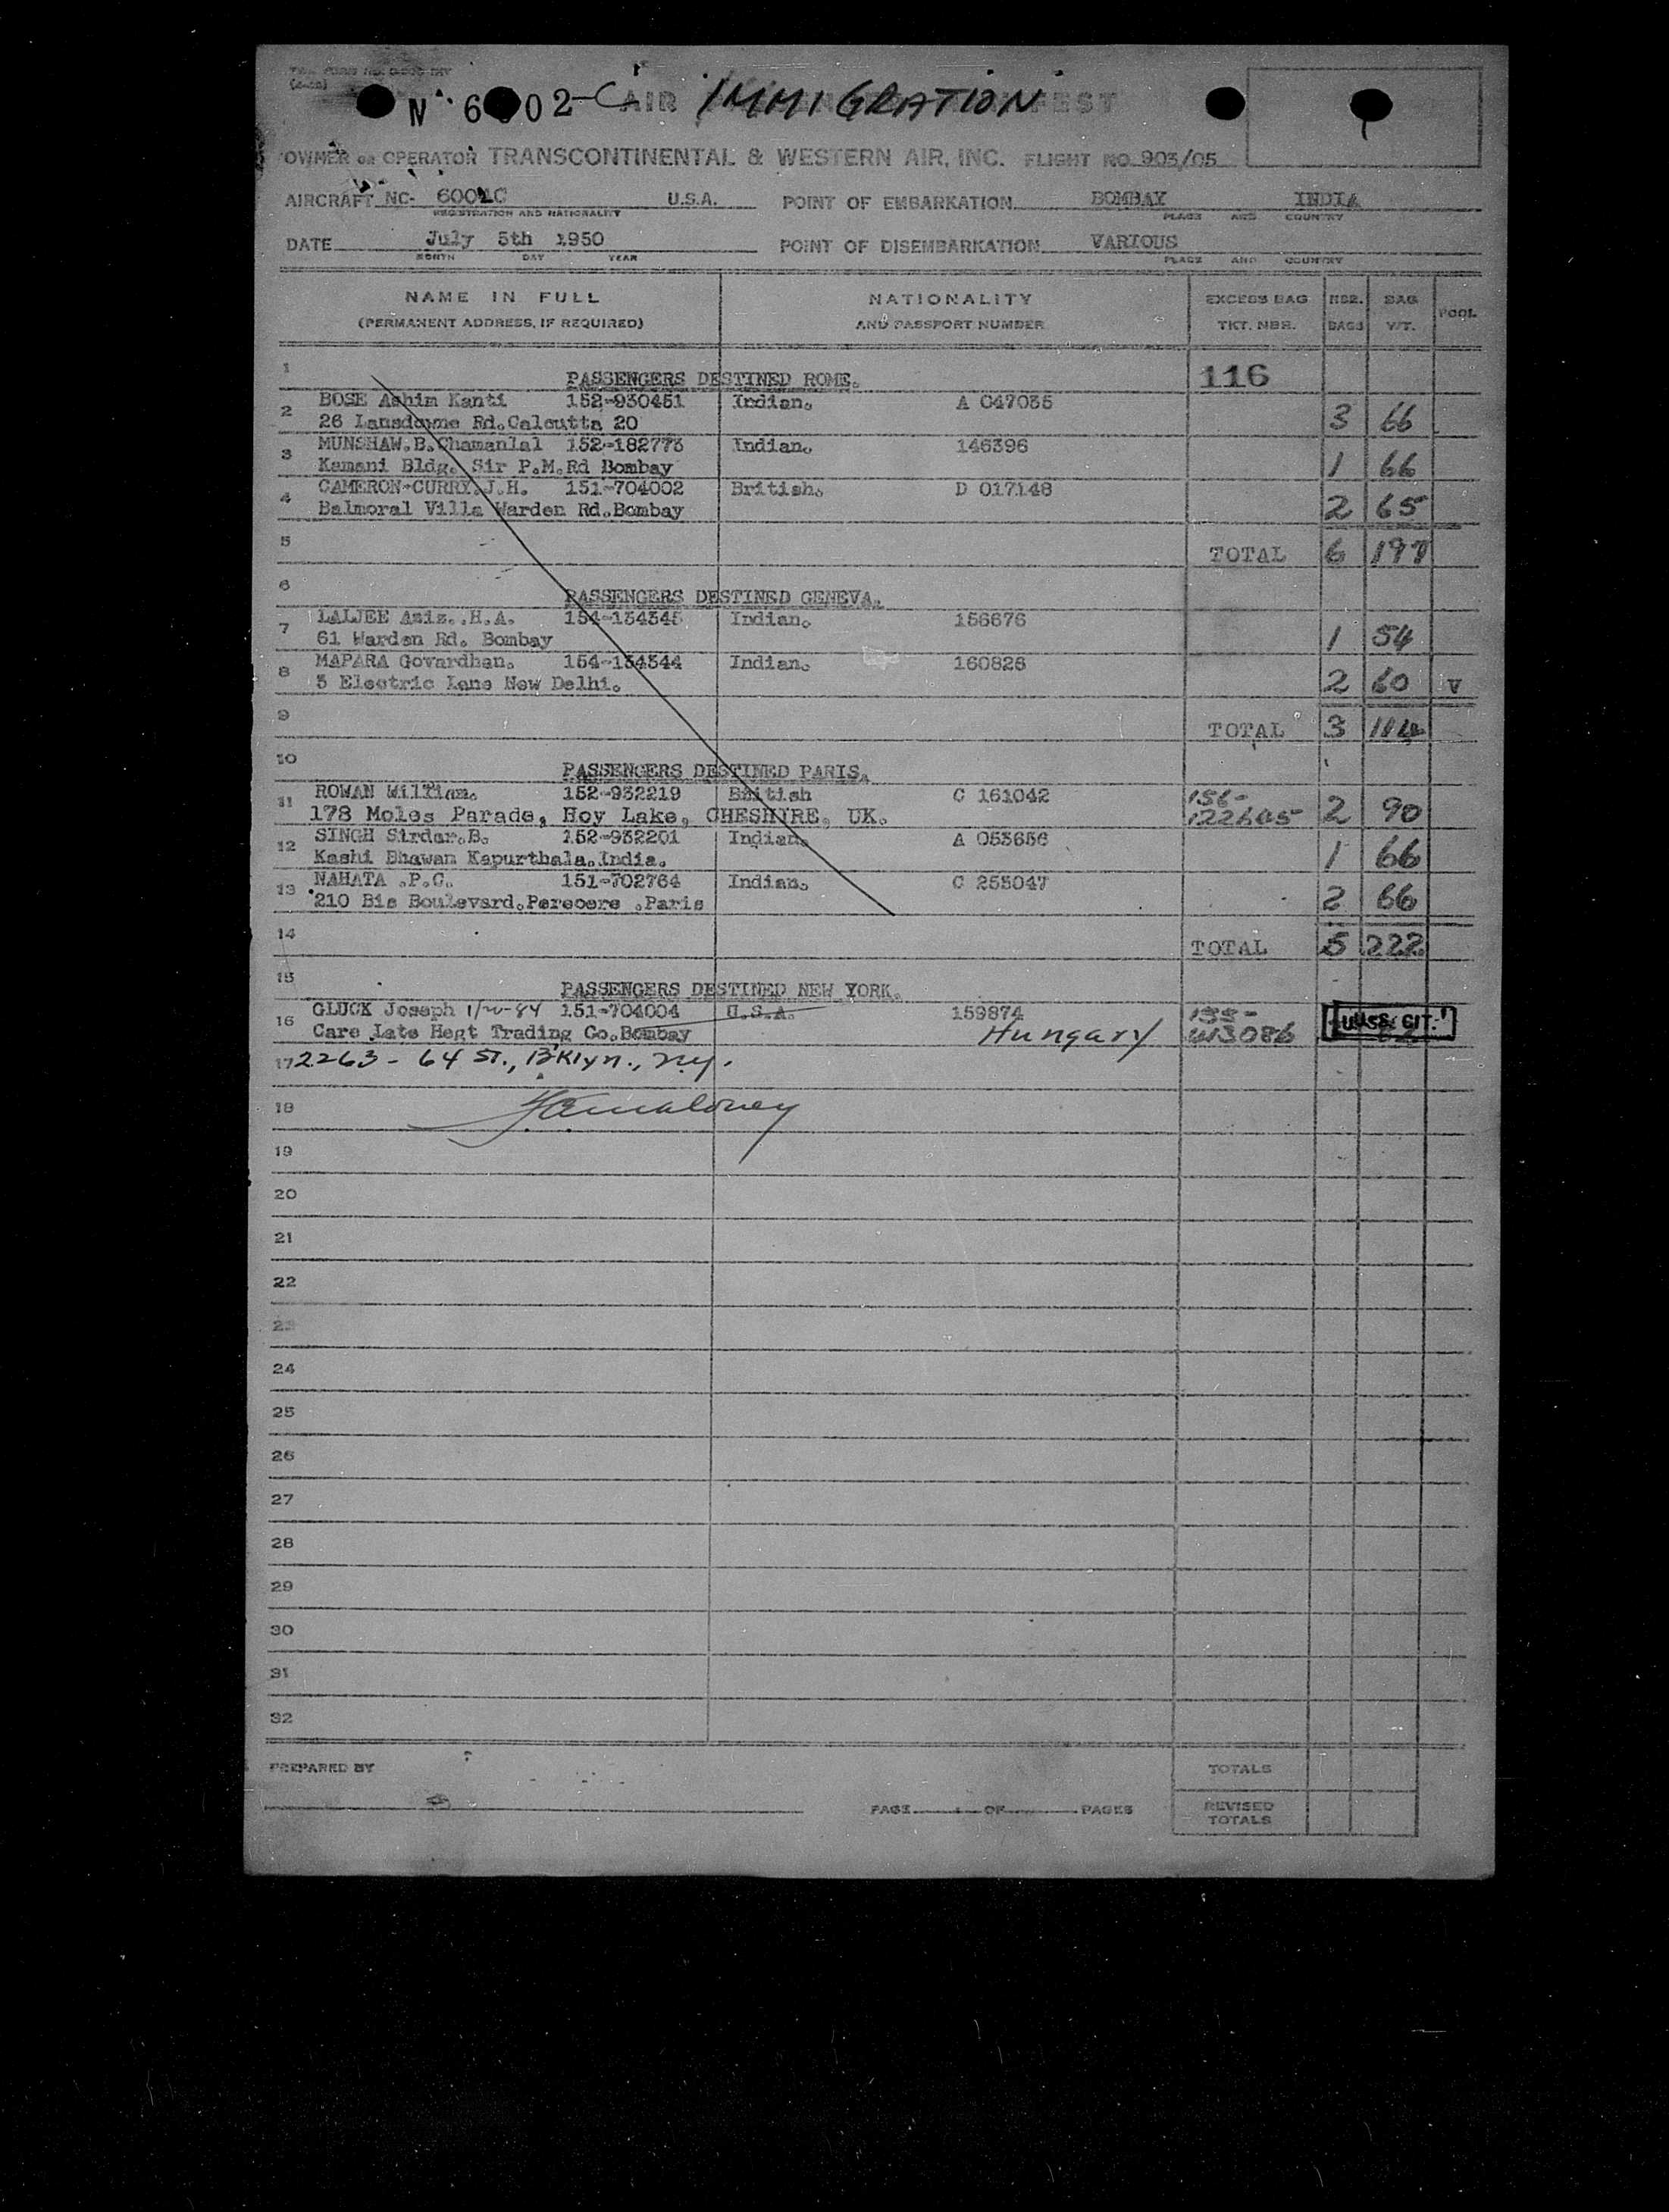 N 6002-C AIR IMMIGRATION
OWNER OR OPERATOR TRANSCONTINENTAL & WESTERN AIR, INC. FLIGHT NO. 903/05
AIRCRAFT NC- 6002C U.S.A. POINT OF EMBARKATION BOMBAY INDIA
REGISTRATION AND NATIONALITY PLACE AND COUNTRY
DATE July 5th 1950 POINT OF DISEMBARKATION VARIOUS
MONTH DAY YEAR PLACE AND COUNTRY
NAME IN FULL NATIONALITY EXCESS BAG NBR. BAG POOL
(PERMANENT ADDRESS, IF REQUIRED) AND PASSPORT NUMBER TKT. NBR. BAGS WT.
1 PASSENGERS DESTINED ROME. 116
BOSE Ashim Kanti 152-930451 Indian. A 047035
2 26 Lansdowne Rd.Calcutta 20 3 66
MUNSHAW.B.Chamanlal 152-182773 Indian. 146396
3 Kamani Bldg. Sir P.M.Rd Bombay 1 66
CAMERON-CURRY.J.H. 151-704002 British. D 017148
4 Balmoral Villa Warden Rd.Bombay 2 65
5 TOTAL 6 197
6 PASSENGERS DESTINED GENEVA.
LALJEE Aziz..H.A. 154-134345 Indian. 156676
7 61 Warden Rd. Bombay 1 54
MAPARA Govardhan. 154-134344 Indian. 160828
8 3 Electric Lane New Delhi. 2 60 V
9 TOTAL 3 114
10 PASSENGERS DESTINED PARIS.
ROWAN William. 152-932219 British C 161042 156-
11 178 Moles Parade, Hoy Lake, CHESHIRE, UK. 122605 2 90
SINGH Sirdar.B. 152-932201 Indian. A 053656
12 Kashi Bhawan Kapurthala.India. 1 66
NAHATA .P.C. 151-702764 Indian. C 255047
13 210 Bis Boulevard.Perecere .Paris 2 66
14 TOTAL 5 222
15 PASSENGERS DESTINED NEW YORK.
GLUCK Joseph 151-704004 U.S.A. 159874 155-
16 Care Late Hegt Trading Co.Bombay Hungary 613086 U.S. CIT.
17 2263 - 64 ST., B'klyn., N.Y.
18
19
20
21
22
23
24
25
26
27
28
29
30
31
32
PREPARED BY TOTALS
PAGE OF PAGES REVISED
TOTALS